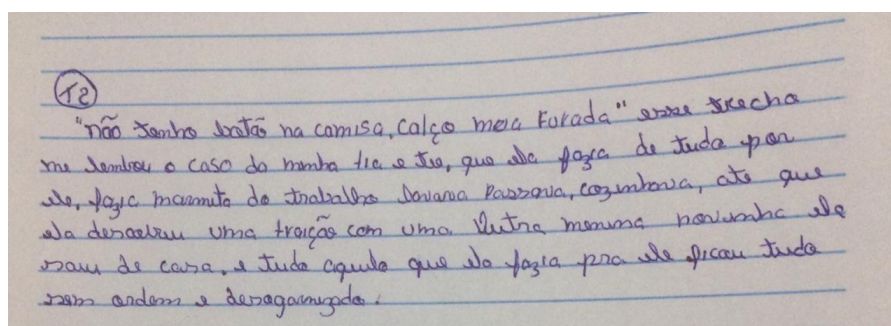 T2
"não tenho batão na camisa, calço meia Furada" esse trecho
me lembrou o caso da minha tia e tio, que ela fazia de tudo por
ele, fazia marmita do trabalho lavava Passava, cozinhava, até que
ela descobriu uma traição com uma Outra menina novinha ele
saiu de casa. e tudo aquilo que ela fazia pra ele ficou tudo
sem ordem e desogarnizado.